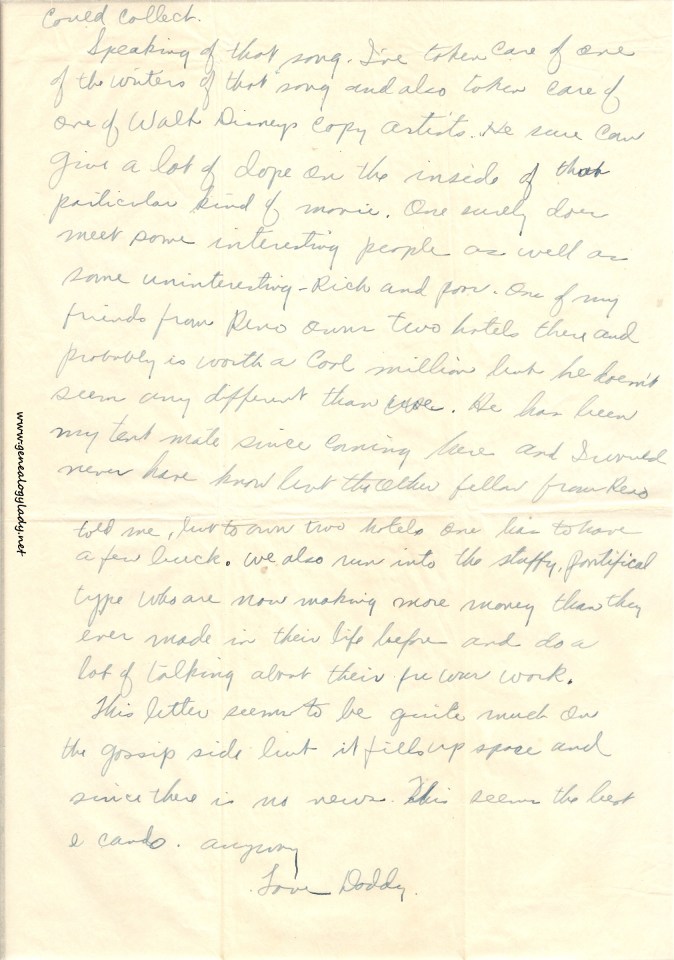 could collect.
Speaking of that song. I've taken care of one
of the writers of that song and also taken care of
one of Walt Disneys copy artists. He sure can
give a lot of dope on the inside of that
particular kind of movie. One surely does
meet some interesting people as well as
some uninteresting - Rich and poor. One of my
friends from Reno owns two hotels there and
probably is worth a cool million but he doesn't
seem any different than else. He has been
my tent mate since coming here and I would
never have know but the other fellow from Reno
told me, but to own two hotels one has to have
a few buck. We also run into the stuffy, pontifical
type who are now making more money than they
ever made in their life before and do a
lot of talking about their pre war work.
This letter seems to be quite much on
the gossip side but it fills up space and
since there is no news. This seems the best
I can do. anyway
Love Daddy.
www.genealogylady.net